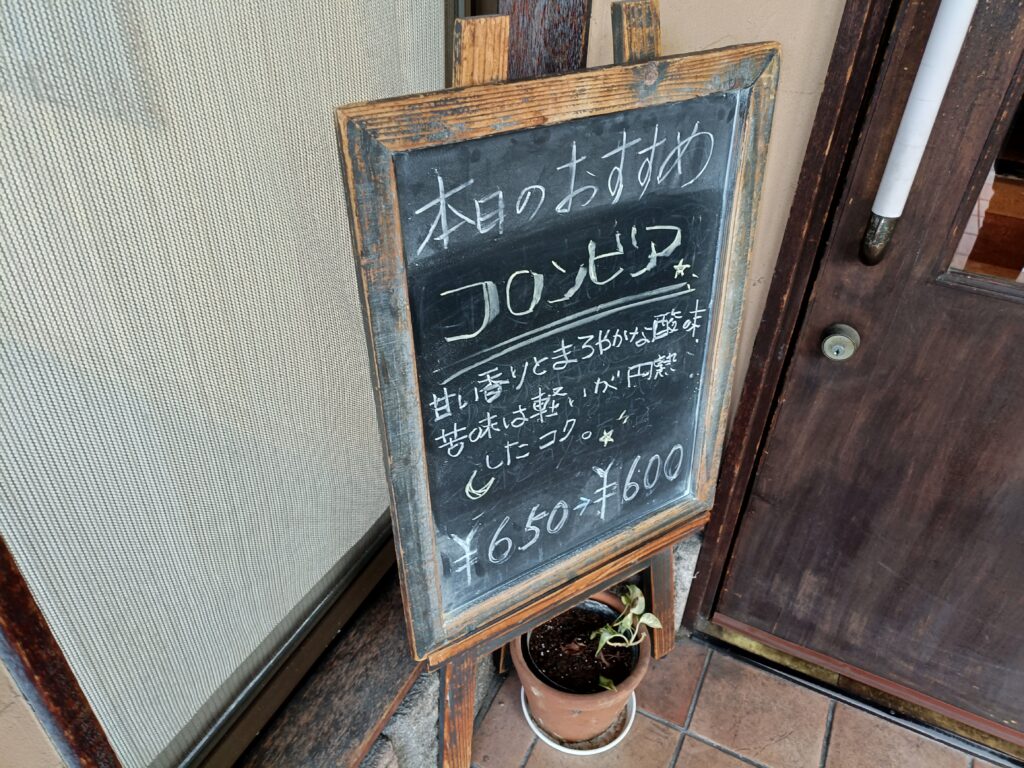 本日のおすすめ
コロンビア
甘い香りとまろやかな酸味
苦味は軽いが円熟
したコク。
¥650→¥600